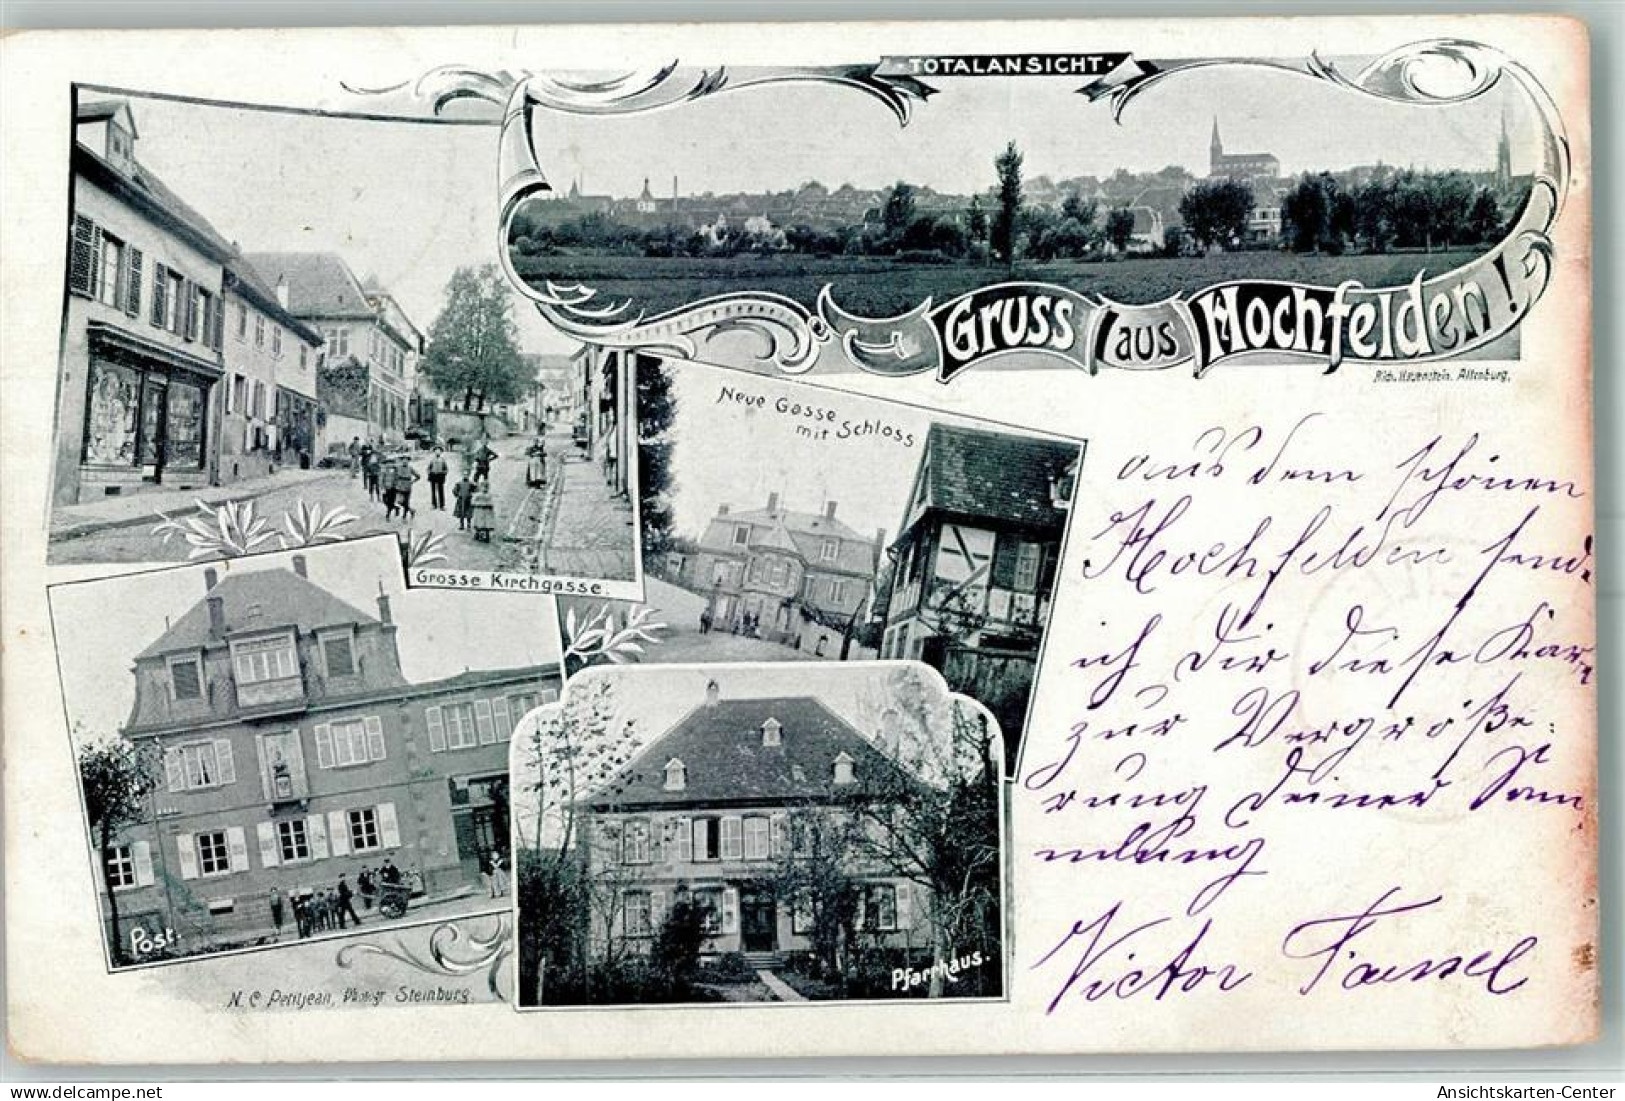 ·TOTALANSICHT·
Gruss aus Hochfelden!
Rich. Hagenstein, Altenburg.
Grosse Kirchgasse.
Neue Gasse
mit Schloss
Post.
Pfarrhaus.
N. C Petitjean, Photogr Steinburg.
aus dem schönen
Hochfelden send.
ich Dir diese Kar.
zur Vergröße:
rung Deiner Sam
mlung
Victor
Ansichtskarten-Center